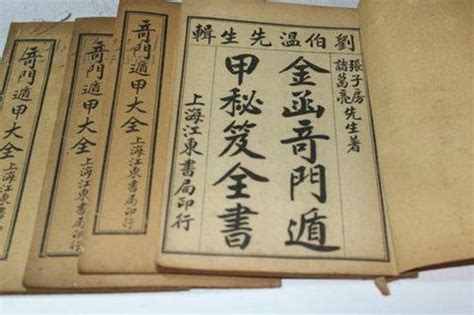 劉伯溫先生輯
張子房
諸葛亮
先生著
金函竒門遁
甲秘笈全書
上海江東書局印行
竒門遁甲大全
上海江東書局印行
竒門遁甲大全
上海江東書局印行
竒門遁甲大全
上海江東書局